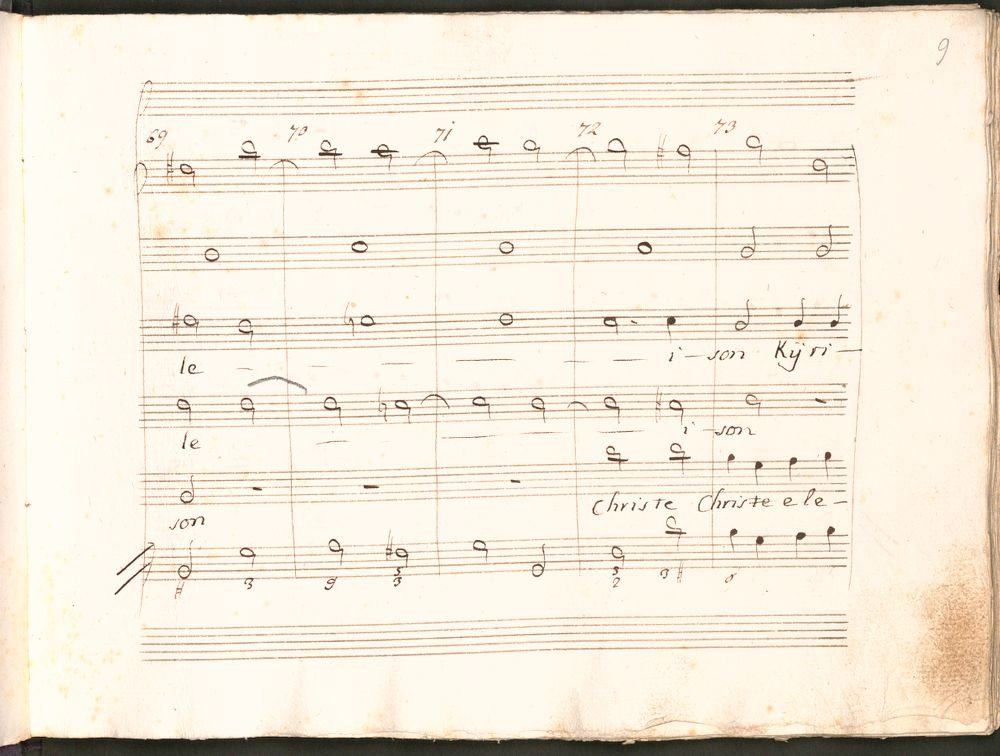 9
69 70 71 72 73
le i-son Kÿri-
le i-son
son Christe Christe ele-
3 9 5 3 5 2 3 6